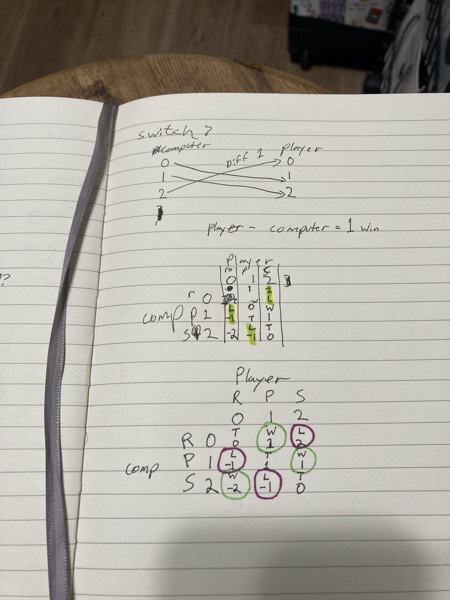 switch?
computer Diff 1 player
0 0
1 1
2 2
player - computer = 1 win
Player
r p s
0 1 2
r 0 1 2
L
comp P 1 L -1 0 W 1
T T
S 2 -2 L -1 0
Player
R P S
0 1 2
R 0 T 0 W 1 L 2
comp P 1 L -1 T 1 W 1
S 2 W -2 L -1 T 0